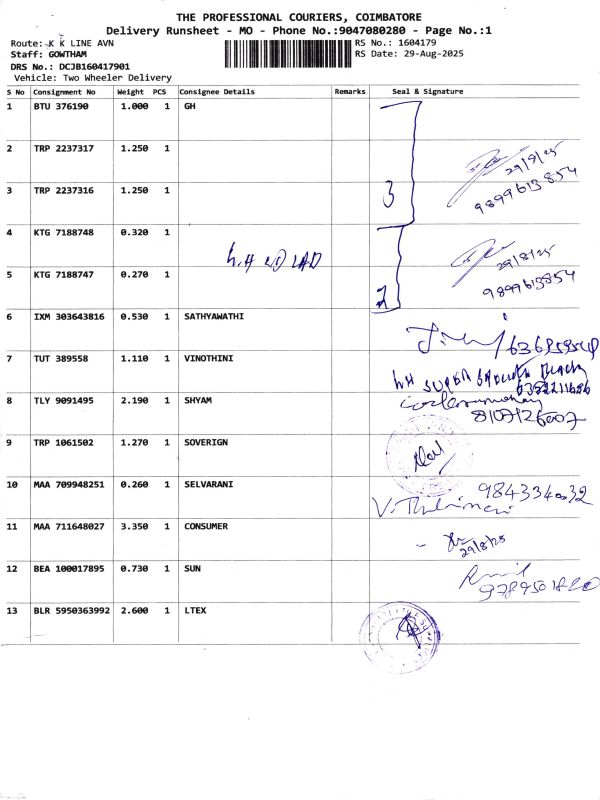 THE PROFESSIONAL COURIERS, COIMBATORE
Delivery Runsheet - MO - Phone No.:9047080280 - Page No.:1
Route: K K LINE AVN
RS No.: 1604179
Staff: GOWTHAM
RS Date: 29-Aug-2025
DRS No.: DCJB160417901
Vehicle: Two Wheeler Delivery
S No Consignment No Weight PCS Consignee Details Remarks Seal & Signature
1 BTU 376190 1.000 1 GH
2 TRP 2237317 1.250 1 29/8/25
3 TRP 2237316 1.250 1 3 9899613854
4 KTG 7188748 0.320 1 29/8/25
5 KTG 7188747 0.270 1 2 9899613854
6 IXM 303643816 0.530 1 SATHYAWATHI
7 TUT 389558 1.110 1 VINOTHINI
8 TLY 9091495 2.190 1 SHYAM 8107126007
9 TRP 1061502 1.270 1 SOVERIGN
10 MAA 709948251 0.260 1 SELVARANI 9843340032
11 MAA 711648027 3.350 1 CONSUMER 29/8/25
12 BEA 100017895 0.730 1 SUN
13 BLR 5950363992 2.600 1 LTEX